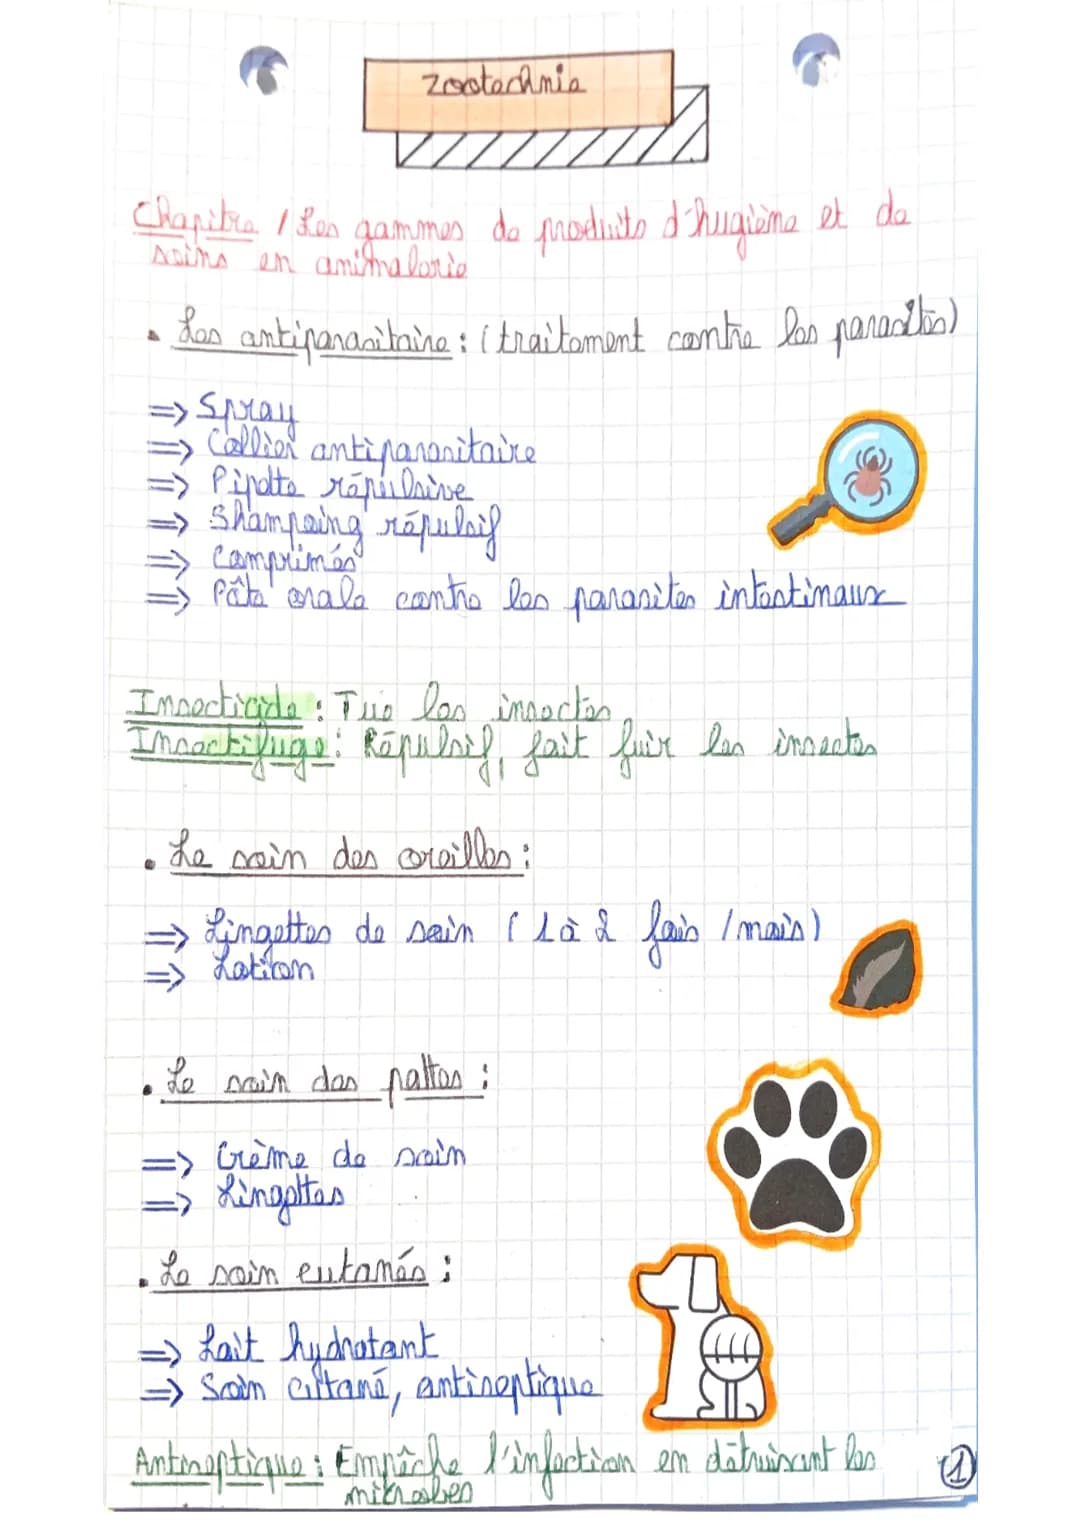 Zootechnie
Chapitre / Les gammes de produits d'hugiène et de
soins en animalerie
• Les antiparasitaire : (traitement contre les parasites)
=> Spray
=> Collier antiparasitaire
=> Pipette répulsive
=> Shampoing répulsif
=> Comprimés
=> Pâte orale contre les parasites intestinaux
Insecticide : Tue les insectes
Insectifuge : Répulsif, fait fuir les insectes
• Le soin des oreilles :
=> Lingettes de soin (1 à 2 fois /mois)
=> Lotion
• Le soin des pattes :
=> Crème de soin
=> Lingettes
• Le soin cutanés :
=> Lait hydratant
=> Soin cutané, antiseptique
Antiseptique : Empêche l'infection en détruisant les
microbes
1